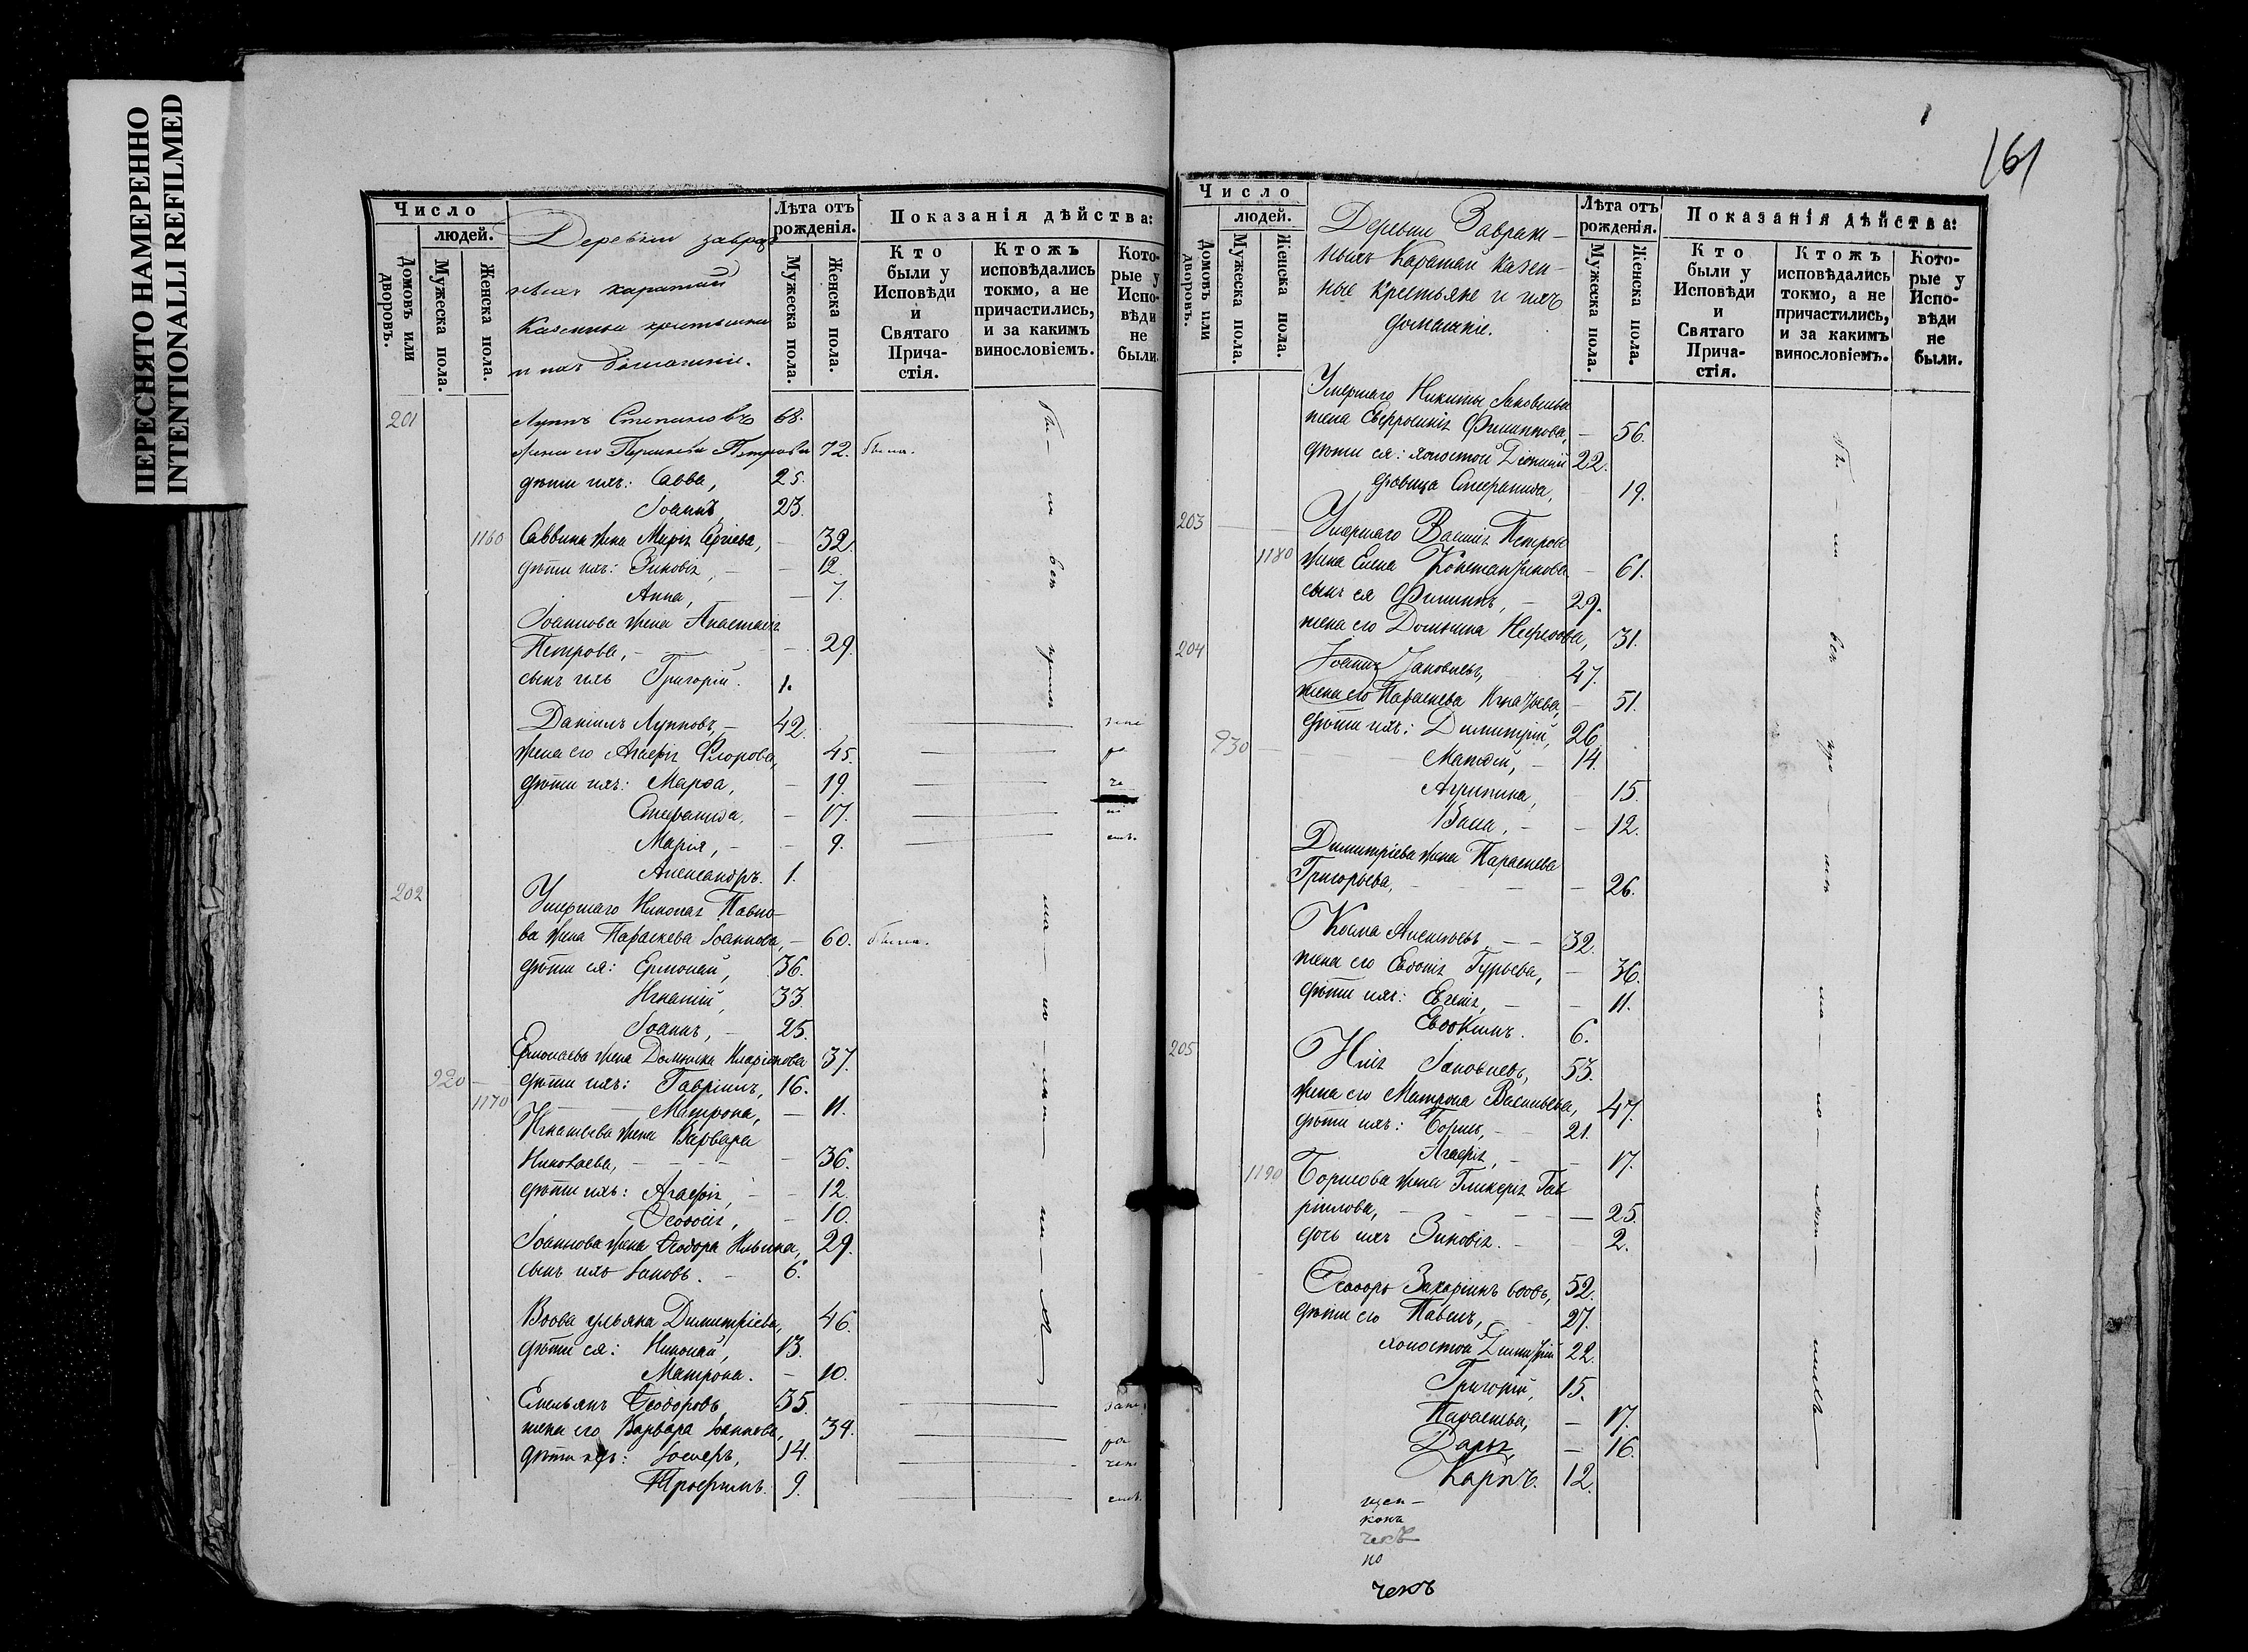 ПЕРЕСНЯТО НАМЕРЕННО
INTENTIONALLI REFILMED
Число
людей.
Домовъ или дворовъ.
Мужеска пола.
Женска пола.
Деревни Завраж
ныхъ Каратай
Казенные крестьяне
и ихъ домашніе.
Лѣта отъ рожденія.
Мужеска пола.
Женска пола.
Показанія дѣйства:
Кто были у Исповѣди и Святаго Прича-стія.
Ктожъ исповѣдались токмо, а не причастились, и за какимъ винословіемъ.
Кото-рые у Испо-вѣди не были.
201 Луппъ Степановъ 68.
жена его Петрова 72. была.
дѣти ихъ: Савва, 25.
Іоаннъ 23.
1160 Саввина жена Марія Сергіева, 32.
дѣти ихъ: Зиновія, 12.
Анна, 7.
Іоаннова жена Анастасія
Петрова, 29.
сынъ ихъ Григорій. 1.
Даніилъ Лупповъ, 42.
жена его Агафія Флорова, 45.
дѣти ихъ: Марѳа, 19.
Стефанида, 17.
Марія, 9.
Александръ. 1.
202 Умершаго Николая Павло-
ва жена Параскева Іоаннова, 60. была.
дѣти ея: Ермолай, 36.
Игнатій, 33.
Іоаннъ, 25.
Ермолаева жена Домника Иларіонова 37.
920 дѣти ихъ: Гавріилъ, 16.
1170 Матрона, 11.
Игнатьева жена Варвара
Николаева, 36.
дѣти ихъ: Агафія, 12.
Ѳеодосія, 10.
Іоаннова жена Ѳеодора Ильина, 29.
сынъ ихъ Іаковъ. 6.
Вдова Ульяна Димитріева, 46.
дѣти ея: Николай, 13.
Матрона. 10.
Емельянъ Ѳеодоровъ 35.
жена его Варвара Іоаннова, 34.
дѣти ихъ: Іосифъ, 14.
Трофимъ. 9.
161
Число
людей.
Домовъ или дворовъ.
Мужеска пола.
Женска пола.
Деревни Завраж-
ныхъ Каратай казен-
ные крестьяне и ихъ
домашніе.
Лѣта отъ рожденія.
Мужеска пола.
Женска пола.
Показанія дѣйства:
Кто были у Исповѣди и Святаго Прича-стія.
Ктожъ исповѣдались токмо, а не причастились, и за какимъ винословіемъ.
Кото-рые у Испо-вѣди не были.
Умершаго Никиты Іаковлева
жена Евфросинія Филиппова, 56.
дѣти ея: холостой Діонисій 22.
дѣвица Стефанида, 19.
203 Умершаго Василія Петрова
1180 жена Елена Константинова 61.
сынъ ея Филиппъ, 29.
жена его Домника Нефедова, 31.
204 Іоаннъ Іаковлевъ, 47.
жена его Параскева Игнатьева, 51.
дѣти ихъ: Димитрій, 26
930 Матѳей, 14.
Агрипина, 15.
Васса, 12.
Димитріева жена Параскева
Григорьева, 26.
Косма Алексѣевъ 32.
жена его Евдокія Гурьева, 36.
дѣти ихъ: Евгенія, 11.
Евдокимъ. 6.
205 Илія Іаковлевъ, 53.
жена его Матрона Васильева, 47.
дѣти ихъ: Борисъ, 21.
Агафія, 17.
1190 Борисова жена Гликерія Гав
ріилова, 25.
дочь ихъ Зиновія. 2.
Ѳеодоръ Захаріинъ вдовъ, 52.
дѣти его Павелъ, 27.
холостой Димитрій 22.
Григорій, 15.
Параскева, 17.
Дарья, 16.
Карпъ. 12.